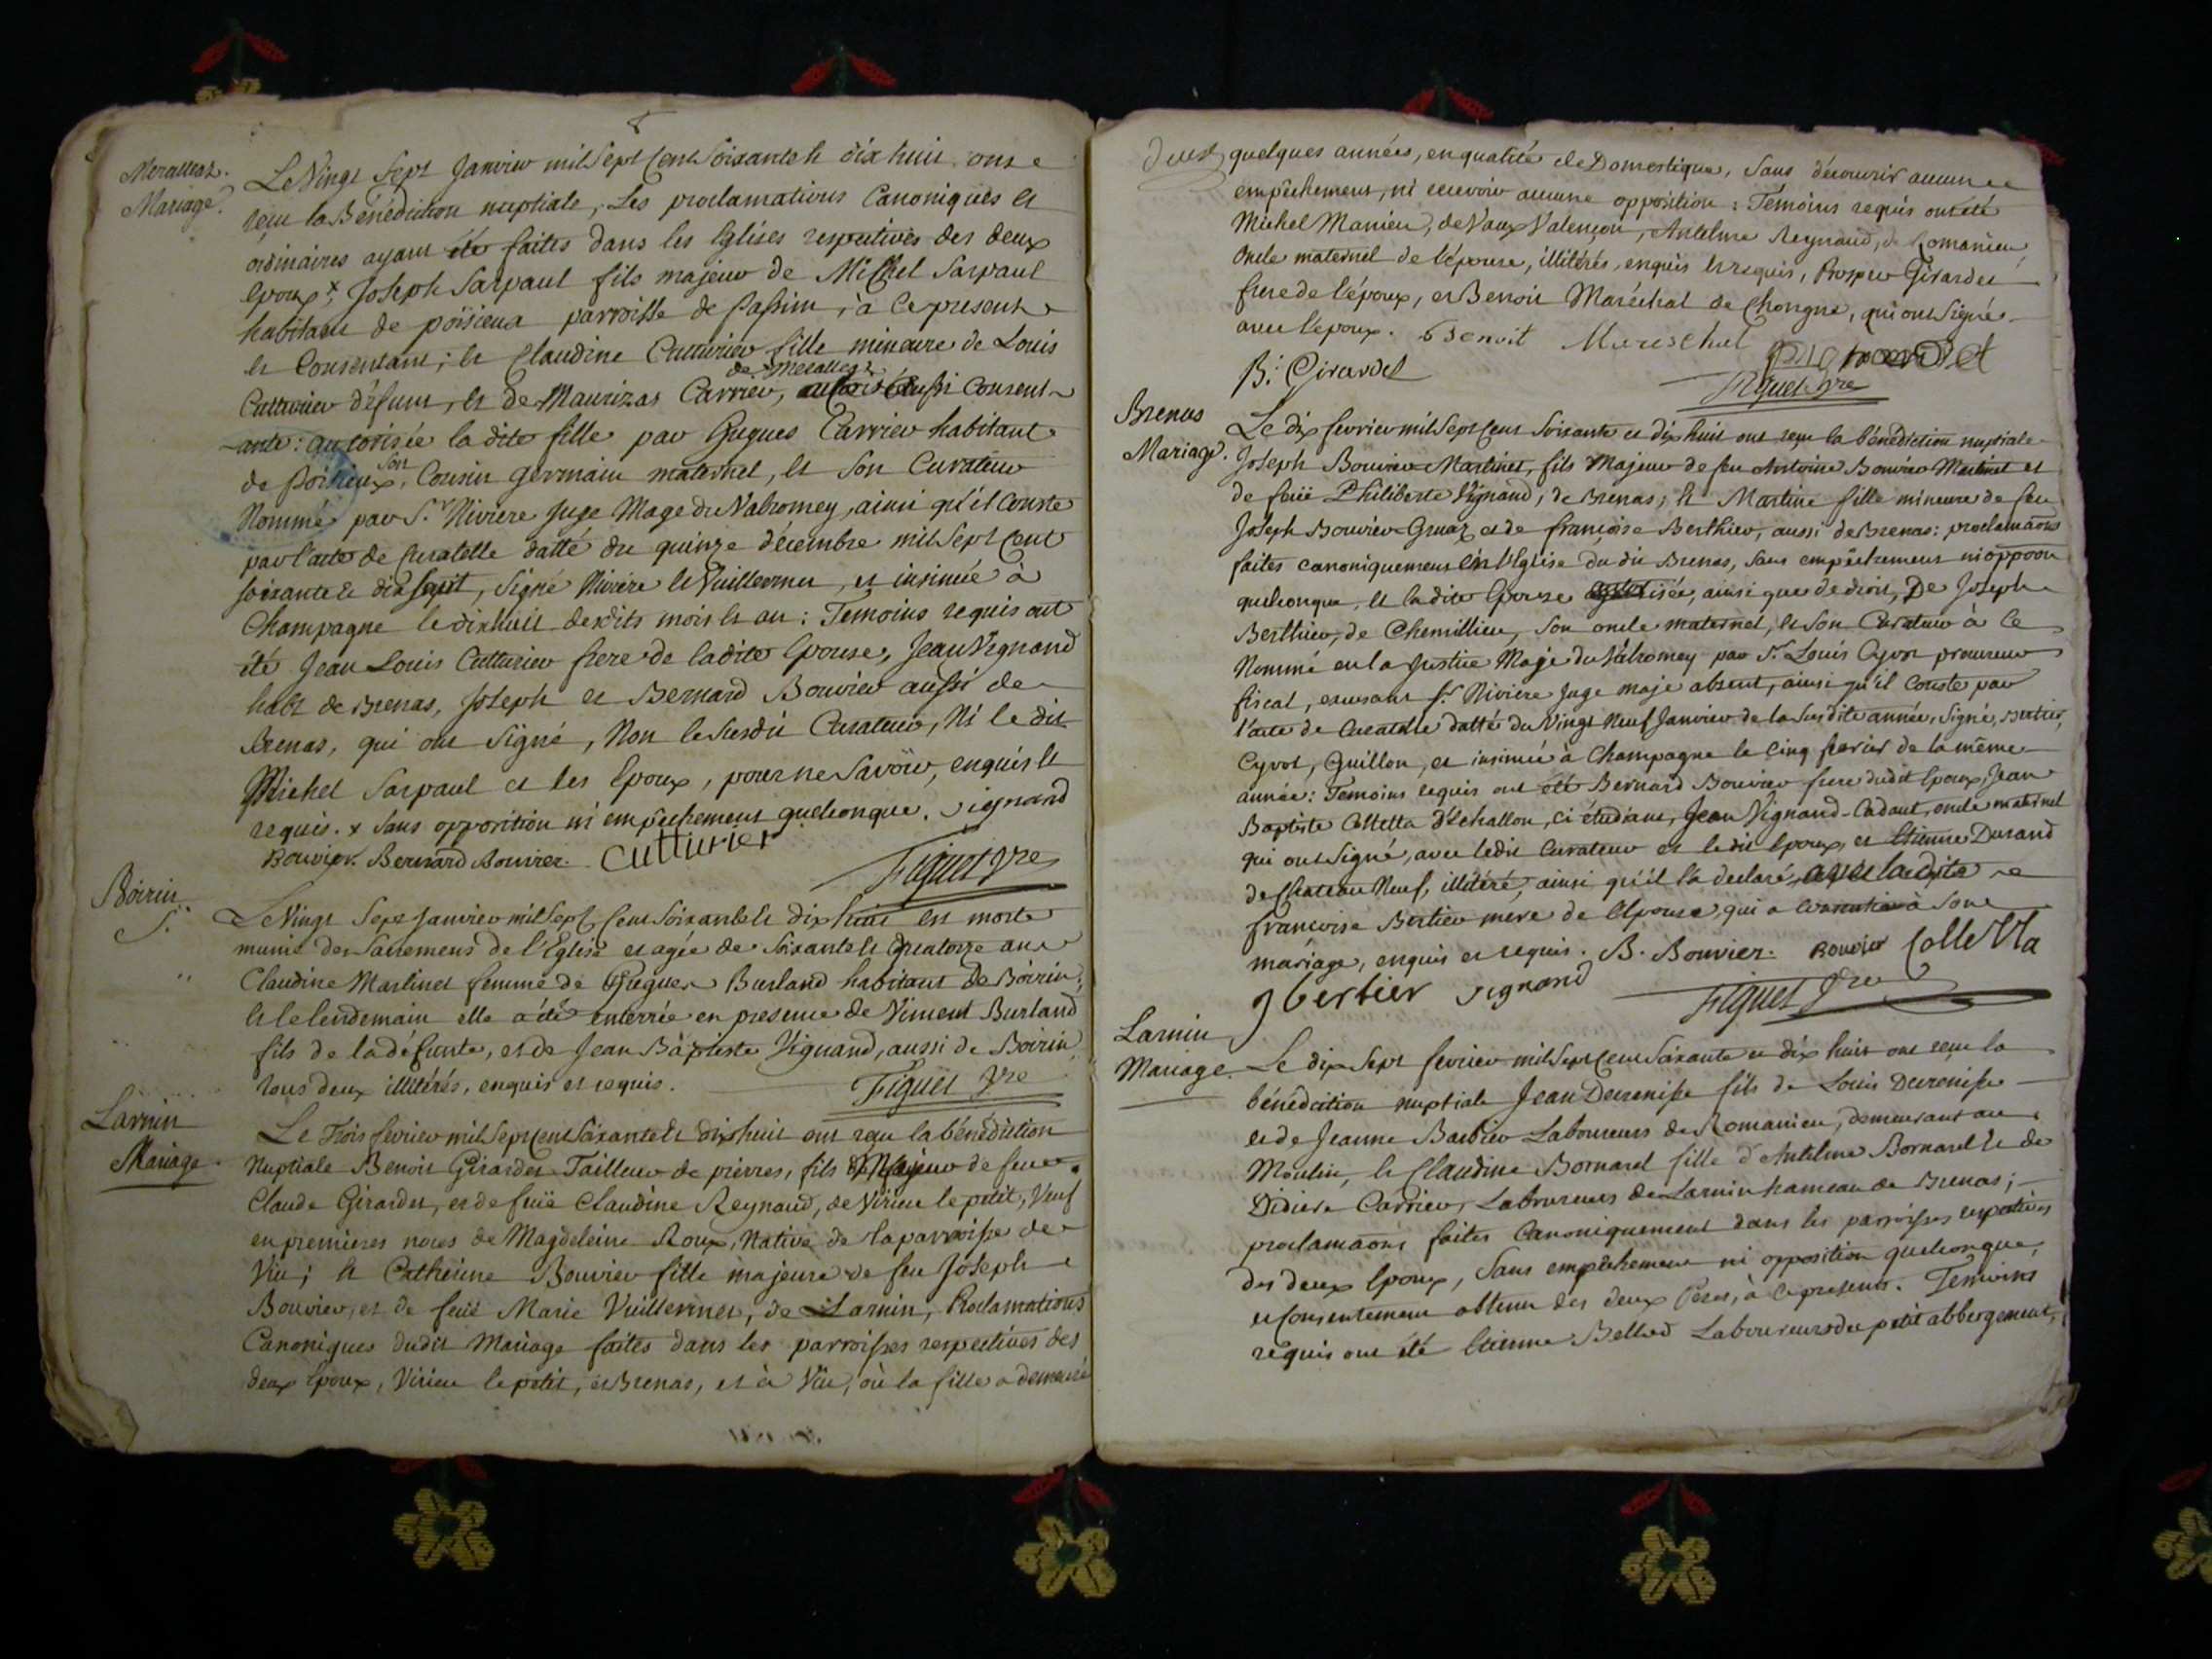 Meralleaz.
Mariage.
Le Vingt Sept Janvier mil Sept Cent Soixante & dix huit ont
reçu la Bénédiction nuptiale, Les proclamations Canoniques et
ordinaires ayant été faites dans les Eglises respectives des deux
Epoux x, Joseph Sarpaul fils majeur de Michel Sarpaul
habitant de poisieux parroisse de passim, à ce present
et Consentant; et Claudine Cutturier fille mineure de Louis
de Meralleaz
Cutturier défunt, et de Maurizas Carrier, aussi Consent-
-ante: autorisée la dite fille par Gugues Carrier habitant
son
de Poisieux, Cousin germain maternel, et Son Curateur
Nommé par S.r Niviere Juge Mage du Valromey, ainsi qu'il Conste
par l'acte de Curatelle datté du quinze décembre mil Sept Cent
soixante & dix sept, Signé Niviere et Vuillermet, et insinuée à
Champagne le dixhuit desdits mois et an: Temoins requis ont
été Jean Louis Cutturier frere de ladite Epouse, Jean Vignand
habt de Brenas, Joseph et Bernard Bouvier aussi de
Brenas, qui ont Signé, Non le susdit Curateur, Ni le dit
Michel Sarpaul et les Epoux, pour ne Savoir, enquis et
requis. x Sans opposition ni empêchement quelconque. vignand
Bouvier. Bernard Bouvier. Cutturier
Figuet Vre
Boirin
S.
Le Vingt Sept Janvier mil Sept Cent Soixante & dix huit est morte
munie des Sacremens de l'Eglise et agée de Soixante & quatorze ans
Claudine Martinet femme de Gugues Burland habitant de Boirin;
et le lendemain elle a été enterrée en presence de Viment Burland
fils de la défunte, et de Jean Baptiste Vignand, aussi de Boirin,
tous deux illitérés, enquis et requis. Figuet Vre
Larnin
Mariage.
Le Trois fevrier mil Sept Cent Soixante & dix huit ont reçu la bénédiction
Nuptiale Benoit Girardet Tailleur de pierres, fils Majeur de feu
Claude Girardet, et de feüe Claudine Reynaud, de Virieu le petit, Veuf
en premieres noces de Magdeleine Roux, Native de la parroisse de
Viu; & Catherine Bouvier fille majeure de feu Joseph
Bouvier, et de feüe Marie Vuillermet, de Larnin, Proclamations
Canoniques dudit Mariage faites dans les parroisses respectives des
deux Epoux, Virieu le petit, et Brenas, et à Viu, où la fille a demeuré
quelques années, en qualité de Domestique, Sans découvrir aucun
empêchement, ni recevoir aucune opposition: Temoins requis ont été
Michel Manieu, de Vaux Valençon, Antelme Reynaud, de Romanieu,
Oncle maternel de l'épouse, illitérés, enquis et requis, Prosper Girardet
frere de l'époux, et Benoit Maréchal de Chongne, qui ont Signé
avec l'époux. Benoit Mareschal
B: Girardet
Figuet Vre
Brenas
Mariage.
Le dix fevrier mil Sept Cent Soixante et dix huit ont reçu la bénédiction nuptiale
Joseph Bouvier-Martinet, fils Majeur de feu Antoine Bouvier Martinet et
de feüe Philiberte Vignand, de Brenas; & Martine fille mineure de feu
Joseph Bouvier-Gruaz et de françoise Berthier, aussi de Brenas: proclamaons
faites canoniquement en l'Eglise du dit Brenas, Sans empêchement ni oppoon
quelconque, et ladite Epouse autorisée, ainsi que de droit, De Joseph
Berthier, de Chemillieu, Son oncle maternel, et Son Curateur à Ce
Nommé en la Justice Maje du Valromey par S.r Louis Cyvot procureur
fiscal, excusant S.r Niviere Juge maje absent, ainsi qu'il Conste par
l'acte de Curatelle datté du Vingt Neuf Janvier de la Susdite année, Signé, Bertier,
Cyvot, Guillon, et insinué à Champagne le Cinq fevrier de la même
année: Temoins requis ont été Bernard Bouvier frere dudit Epoux, Jean
Baptiste Colletta d'Echallon, ci étudiant, Jean Vignand-Cadaut, oncle maternel
qui ont Signé, avec ledit Curateur et le dit Epoux, et Etienne Durand
de Chateau Neuf, illitéré, ainsi qu'il l'a declaré, avec ladite
françoise Bertier mere de l'Epouse, qui a consenti à Son
mariage, enquis et requis. B. Bouvier. Bouvier Colletta
J Bertier vignand Figuet Vre
Larnin
Mariage.
Le dix Sept fevrier mil Sept Cent Soixante et dix huit ont reçu la
bénédiction nuptiale Jean Decronisse fils de Louis Decronisse
et de Jeanne Barbier Laboureurs de Romanieu, demeurant au
Moulin, & Claudine Bornarel fille d'Antelme Bornarel & de
Didiere Carrier, Laboureurs de Larnin hameau de Brenas;
proclamaons faites Canoniquement dans les parroisses respectives
des deux Epoux, Sans empêchement ni opposition quelconque,
et Consentement obtenu des deux Peres, à ce presents. Temoins
requis ont été Etienne Bellod Laboureurs du petit abbergement,